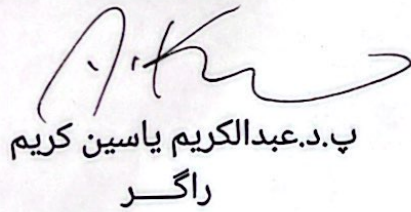 پ.د.عبدالكريم ياسين كريم
راگــر